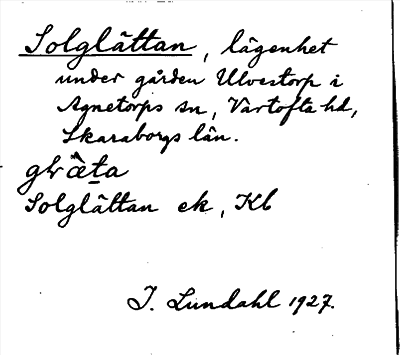 Solglättan, lägenhet
under gården Ulvestorp i
Agnetorps sn, Vartofta hd,
Skaraborgs län.
Solglättan ek, Kb
I. Lundahl 1927.